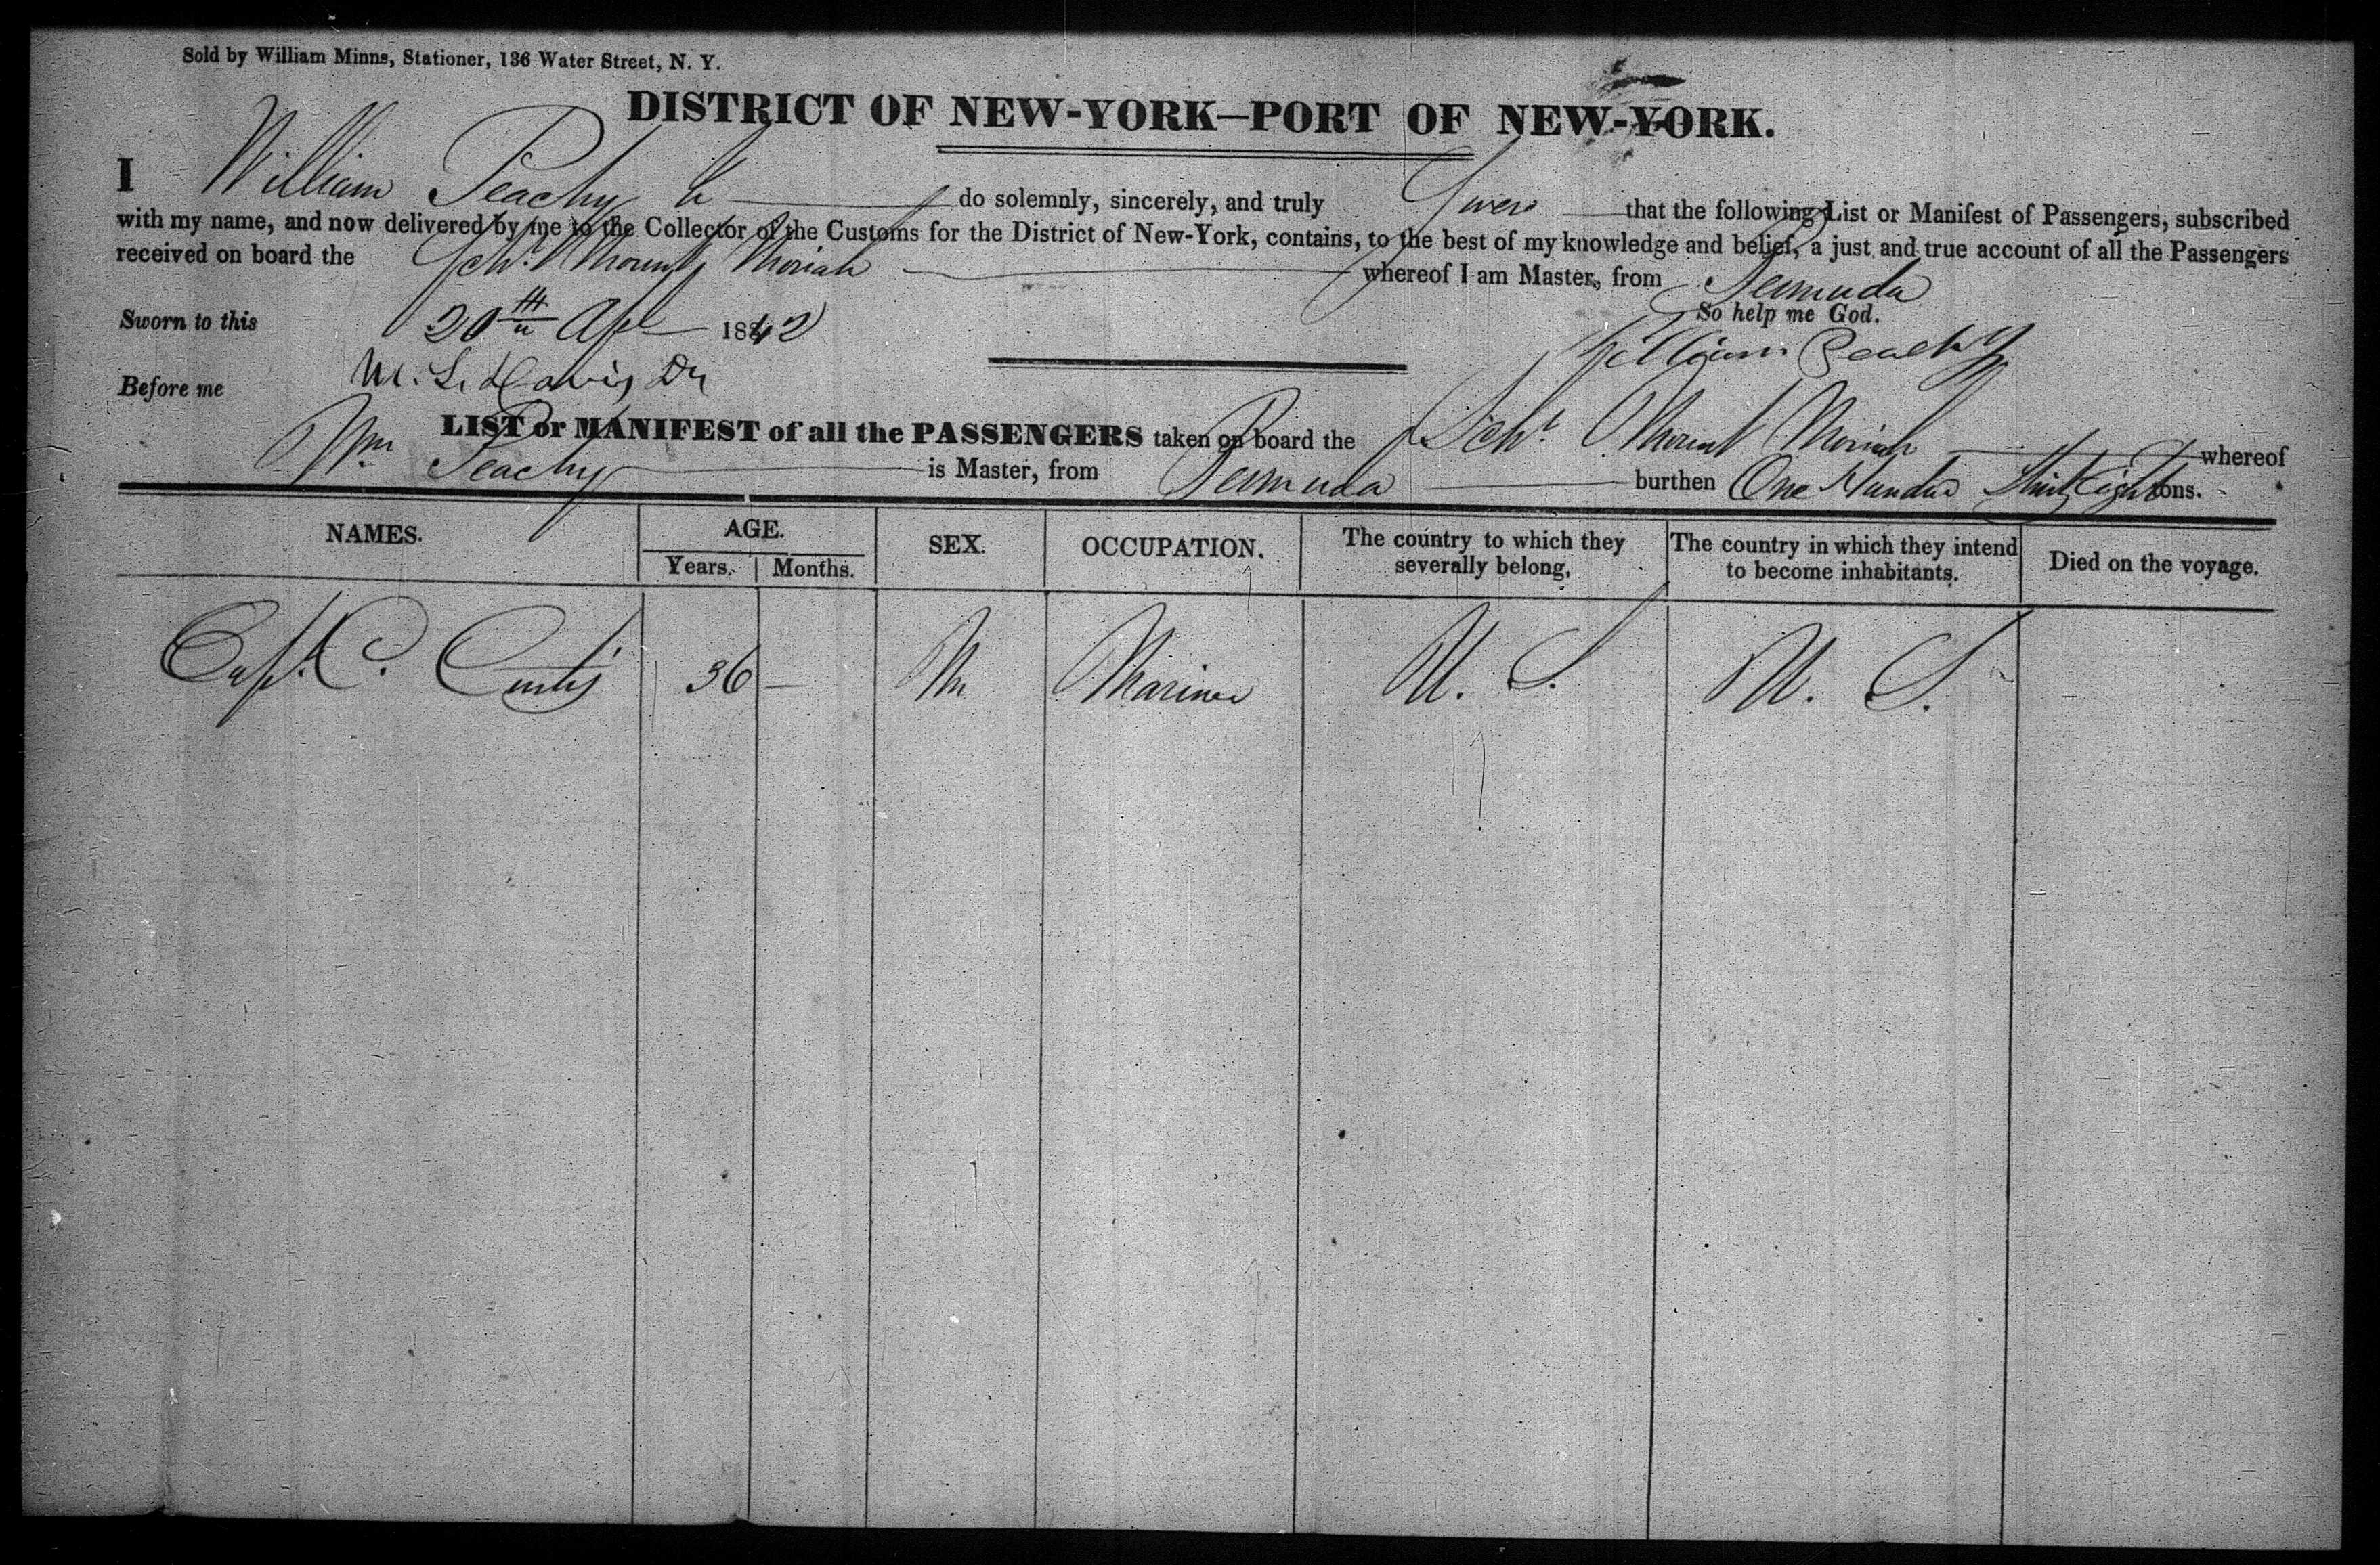 Sold by William Minns, Stationer, 136 Water Street, N. Y.
DISTRICT OF NEW-YORK—PORT OF NEW-YORK.
I William Peachy do solemnly, sincerely, and truly Swear that the following List or Manifest of Passengers, subscribed
with my name, and now delivered by me to the Collector of the Customs for the District of New-York, contains, to the best of my knowledge and belief, a just and true account of all the Passengers
received on board the Schr. Mount Moriah whereof I am Master, from Bermuda
Sworn to this 20th Apl 1842 So help me God.
William Peachy
Before me M. L. Davis
LIST or MANIFEST of all the PASSENGERS taken on board the Schr. Mount Moriah whereof
Wm Peachy is Master, from Bermuda burthen One Hundred Thirty Eight tons.
NAMES. AGE. SEX. OCCUPATION. The country to which they severally belong, The country in which they intend to become inhabitants. Died on the voyage.
Years. Months.
Capt. C. Curtis 36 — M Mariner U. S. U. S.